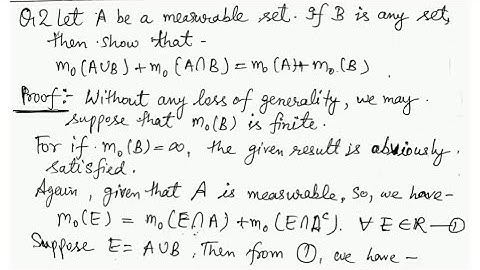 Q.2 Let A be a measurable set. If B is any set,
then show that -
m₀(A∪B) + m₀(A∩B) = m₀(A) + m₀(B)
Proof:- Without any loss of generality, we may
suppose that m₀(B) is finite.
For if m₀(B)=∞, the given result is obviously
satisfied.
Again, given that A is measurable, So, we have -
m₀(E) = m₀(E∩A) + m₀(E∩Aᶜ). ∀ E∈R —①
Suppose E = A∪B, Then from ①, we have -